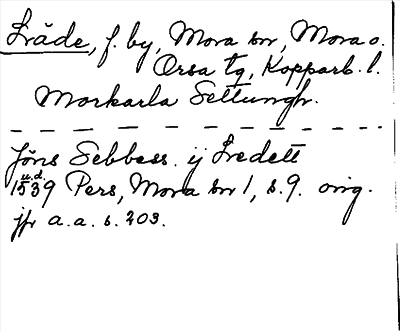 Träde, f. by, Mora sn, Mora o.
Orsa tg, Kopparb. l.
Morkarla Settungh.
Jöns Sebbess. ij Tredett
u.d.
1539 Pers, Mora sn 1, s. 9. orig.
jfr a.a. s. 203.